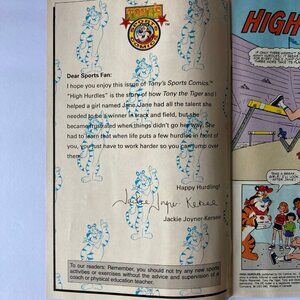 TONY'S
SPORTS
COMICS
TM
Dear Sports Fan:
I hope you enjoy this issue of Tony's Sports Comics™
"High Hurdles" is the story of how Tony the Tiger and I
helped a girl named Jane. Jane had all the talent she
needed to be a winner in track and field, but she
became frustrated when things didn't go her way. She
had to learn that when life puts a few hurdles in front of
you, you just have to work harder so you can jump over
them.
Happy Hurdling!
Jackie Joyner Kersee
Jackie Joyner-Kersee
To our readers: Remember, you should not try any new sports
activities or exercises without the advice and supervision of a
coach or physical education teacher.
HIGH